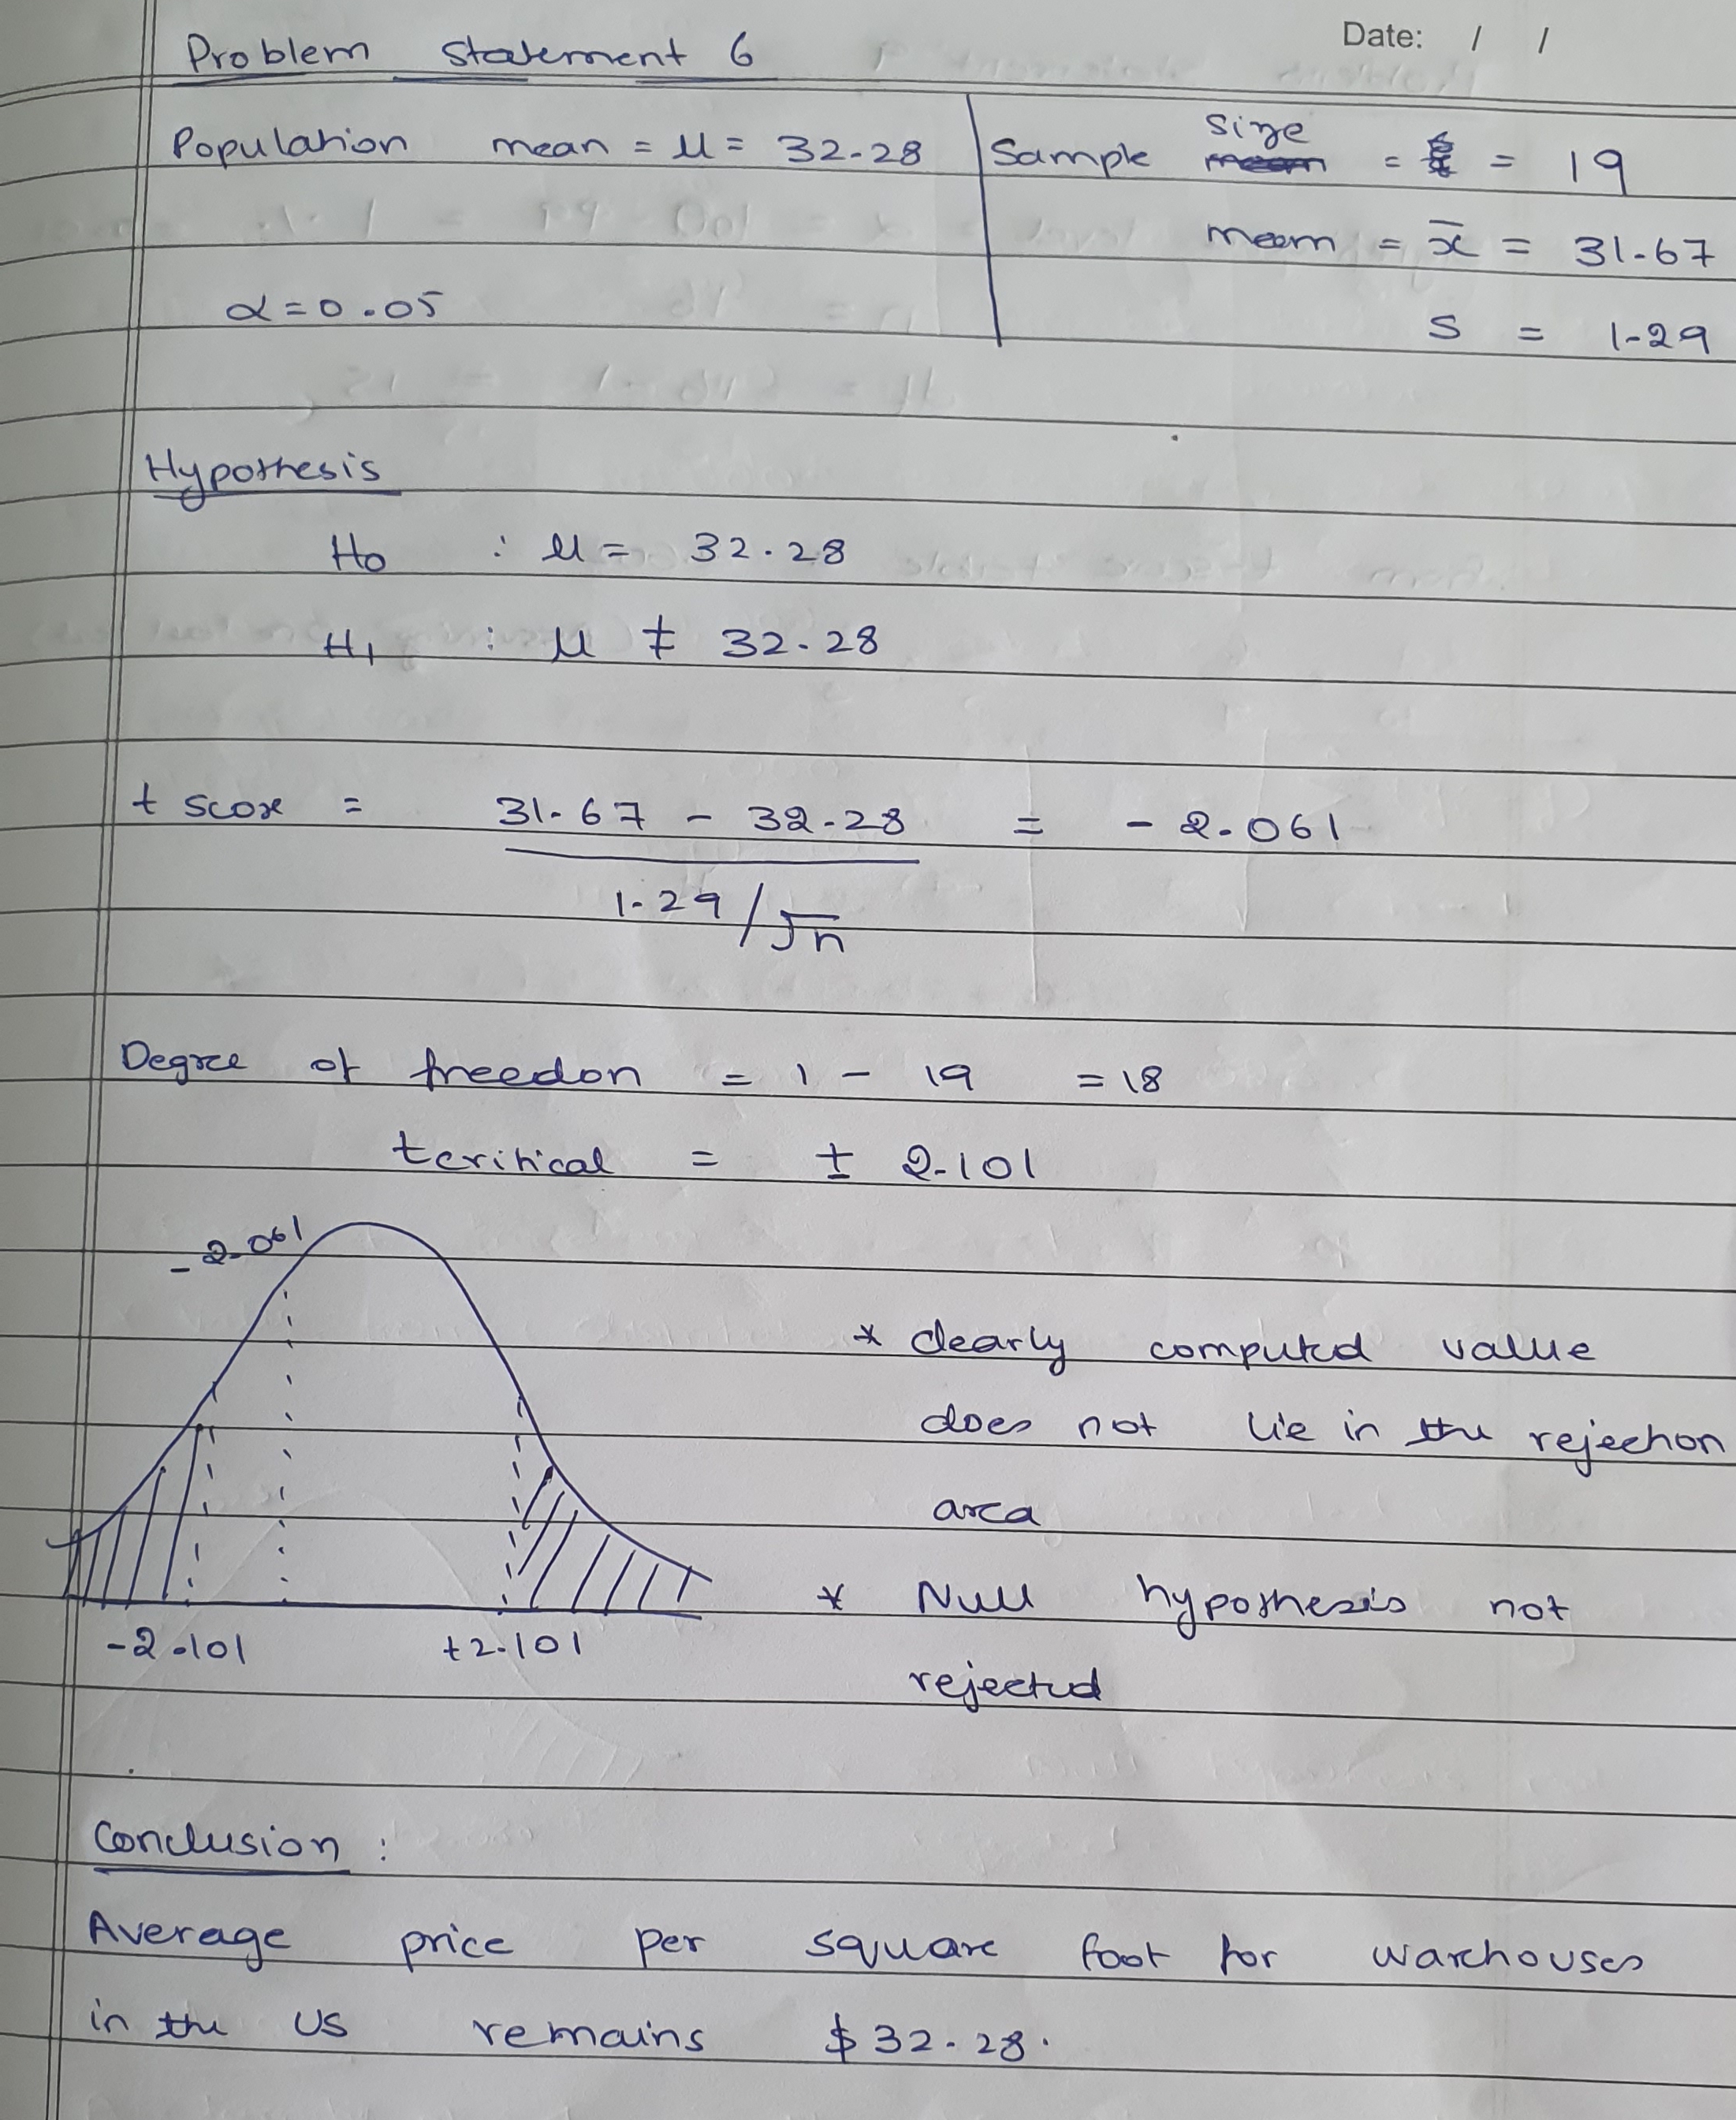 Date: / /
Problem Statement 6
Population mean = μ = 32.28
Sample size = = 19
mean = x̄ = 31.67
α = 0.05
S = 1.29
Hypothesis
H0 : μ = 32.28
H1 : μ ≠ 32.28
t score = 31.67 - 32.28 = - 2.061
1.29/√n
Degree of freedon = 1 - 19 = 18
tcritical = ± 2.101
- 2.061
* clearly computed value
does not lie in the rejection
area
* Null hypothesis not
rejected
-2.101 +2.101
Conclusion :
Average price per square foot for warehouses
in the US remains $32.28.